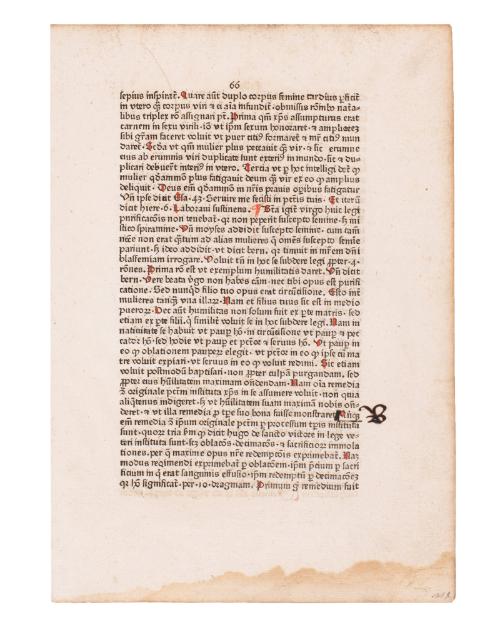 66
sepius inspirat̃. Quare aũt duplo corpus femine tardius ꝑficit̃
in vtero q̃ȝ corpus viri ⁊ ei aĩa infundit̃· obmissis
libus triplex rõ assignari pt̃. Prima qm̃ xp̃s assumpturus erat
carnem in sexu virili· iõ vt ip̃m sexum honoraret· ⁊
sibi gr̃am faceret voluit vt puer citiꝰ formaret̃ ⁊ mr̃ citiꝰ mun
daret̃. Scd̃a vt qm̃ mulier plus peccauit q̃ȝ vir· ⁊ sic erumne
eius ab erumnis viri duplicate sunt exteriꝰ in mundo· sic ⁊ du-
plicari debuer̃t interiꝰ in vtero. Tercia vt ꝑ hoc intelligi det̃ ꝙ
mulier qd̃ãmõ plus fatigauit deum q̃ȝ vir ex eo ꝙ amplius
deliquit. Deus em̃ qd̃ãmõ in nr̃is prauis opibus fatigatur
Vñ ip̃e dicit Esa·43· Seruire me fecisti in pctĩs tuis. Et iterũ
dicit hiere·6· Laboraui sustinens. Bt̃a igit̃ virgo huic legi
purificatiõis non tenebat̃· qr non peperit suscepto semine· ß mi
stico spiramine· Vñ moyses addidit suscepto semine· cum tam̃
nc̃ce non erat qr̃tum ad alias mulieres ꝗ om̃es suscepto semine
pariunt· ß ideo addidit· vt dicit bern. qr timuit in mr̃em dñi
blasfemiam irrogare. Voluit tñ in hoc se subdere legi ꝓpter·4·
rõnes. Prima rõ est vt exemplum humilitatis daret. Vñ dicit
bern. Vere beata ỹgo non habes cãm· nec tibi opus est purifi
catione. Sed nunqd̃ filio tuo opus erat circũcisione. Esto int̃
mulieres tanq̃ȝ vna illarȝ. Nam et filius tuus sic est in medio
puerorȝ. Hec aũt humilitas non solum fuit ex ꝑte matris· sed
etiam ex ꝑte filii· ꝗ similit̃ voluit se in hoc subdere legi. Nam in
natiuitate se habuit vt pauꝑ hõ· in circũcisione vt pauꝑ ⁊ pec
cator hõ· sed hodie vt pauꝑ et pctõr ⁊ seruus hõ. Vt pauꝑ in
eo ꝙ oblationem pauperȝ elegit· vt pctõr in eo ꝙ ipse cũ ma
tre voluit expiari· vt seruus in eo ꝙ voluit redimi. Sic etiam
voluit postmodũ baptisari· non ꝓpter culpã purgandam· sed
ꝓpter eius hũilitatem maximam oñdendam. Nam oĩa remedia
ↄ̃ originale pctm̃ instituta xp̃s in se assumere voluit· non quia
aliꝙtenus indigeret· ß vt hũilitatem suam maximã nobis oñ-
deret· ⁊ vt illa remedia ꝓ tp̃e suo bona fuisse monstraret.
em̃ remedia ↄ̃ ip̃um originale pctm̃ ꝑ processum tp̃is instituta
sunt· quorȝ tria bm̃ ꝙ dicit hugo de sancto victore in lege ve-
teri instituta sunt· scȝ oblatõs· decimatõs· ⁊ sacrificiorȝ immola
tiones· per q̃ maxime opus nr̃e redemptõis exprimebat̃. Naȝ
modus redimendi exprimebat̃ ꝑ oblatõem· ip̃m p̃cium ꝑ sacri
ficium in ꝗ̃ erat sanguinis effusio· ip̃m redemptũ ꝑ decimatõeȝ
qr hõ significat̃· per·10·dragmam. Primum g̃ remedium fuit